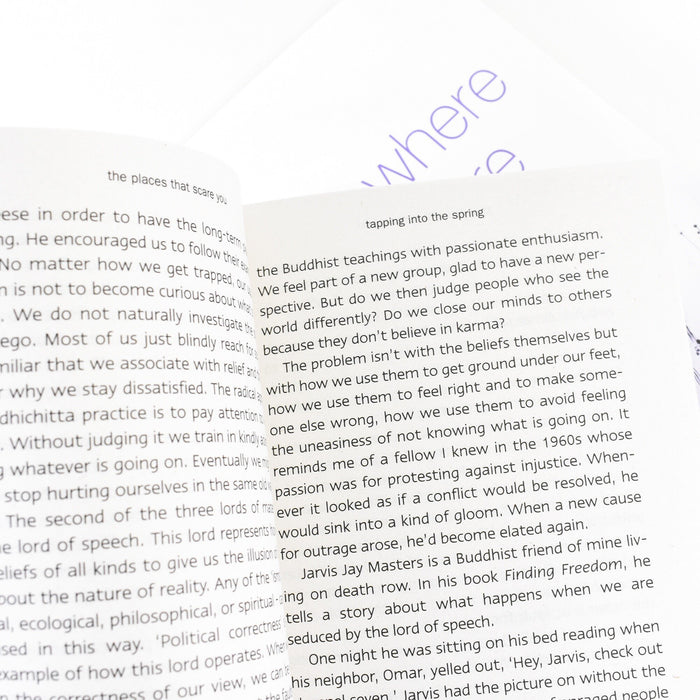 where
re,
the places that scare you
ese in order to have the long-term
ng. He encouraged us to follow their
No matter how we get trapped, our
n is not to become curious about what
. We do not naturally investigate the
ego. Most of us just blindly reach for
miliar that we associate with relief and
r why we stay dissatisfied. The radical
dhichitta practice is to pay attention
. Without judging it we train in kindly
g whatever is going on. Eventually we
stop hurting ourselves in the same old
The second of the three lords of
e lord of speech. This lord represents
eliefs of all kinds to give us the illusion
bout the nature of reality. Any of the
al, ecological, philosophical, or spiritual-
sed in this way. ‘Political correctness
example of how this lord operates. When
n the correctness of our view, we can
tapping into the spring
the Buddhist teachings with passionate enthusiasm.
We feel part of a new group, glad to have a new per-
spective. But do we then judge people who see the
world differently? Do we close our minds to others
because they don’t believe in karma?
The problem isn’t with the beliefs themselves but
with how we use them to get ground under our feet,
how we use them to feel right and to make some-
one else wrong, how we use them to avoid feeling
the uneasiness of not knowing what is going on. It
reminds me of a fellow I knew in the 1960s whose
passion was for protesting against injustice. When-
ever it looked as if a conflict would be resolved, he
would sink into a kind of gloom. When a new cause
for outrage arose, he’d become elated again.
Jarvis Jay Masters is a Buddhist friend of mine liv-
ing on death row. In his book Finding Freedom, he
tells a story about what happens when we are
seduced by the lord of speech.
One night he was sitting on his bed reading when
his neighbor, Omar, yelled out, ‘Hey, Jarvis, check out
seven.’ Jarvis had the picture on without the
people